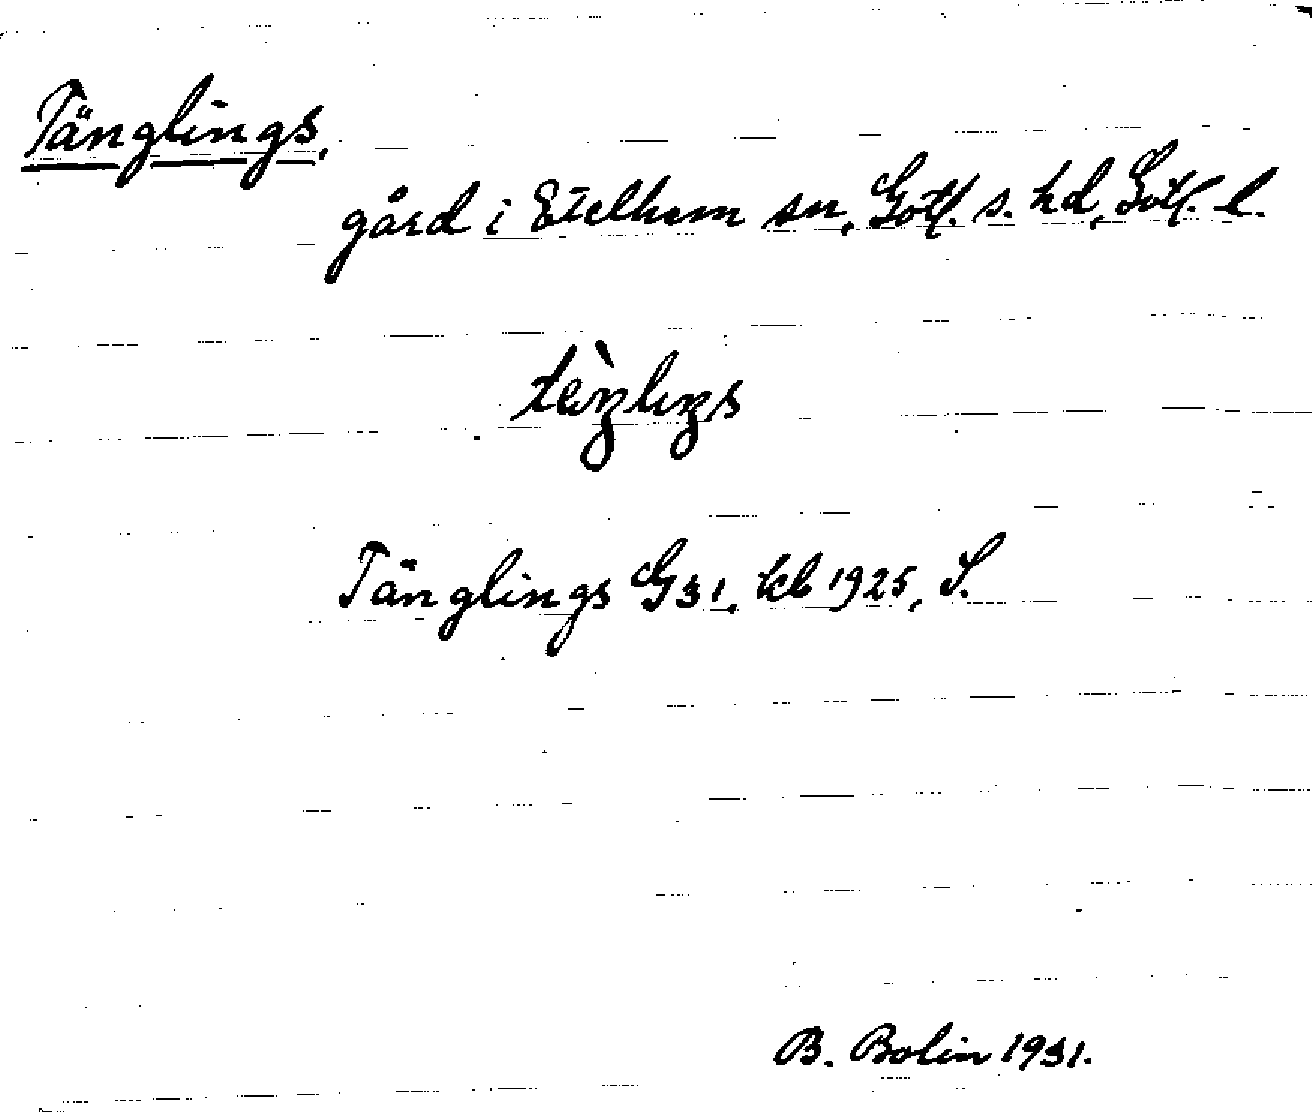 Tänglings,
gård i Etelhem sn, Gotl. s. hd, Gotl. l.
tèŋliŋs
Tänglings G31, kb 1925, S.
B. Bolin 1931.